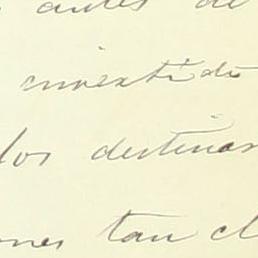 antes de
invertido
los destinar
ones tan cl